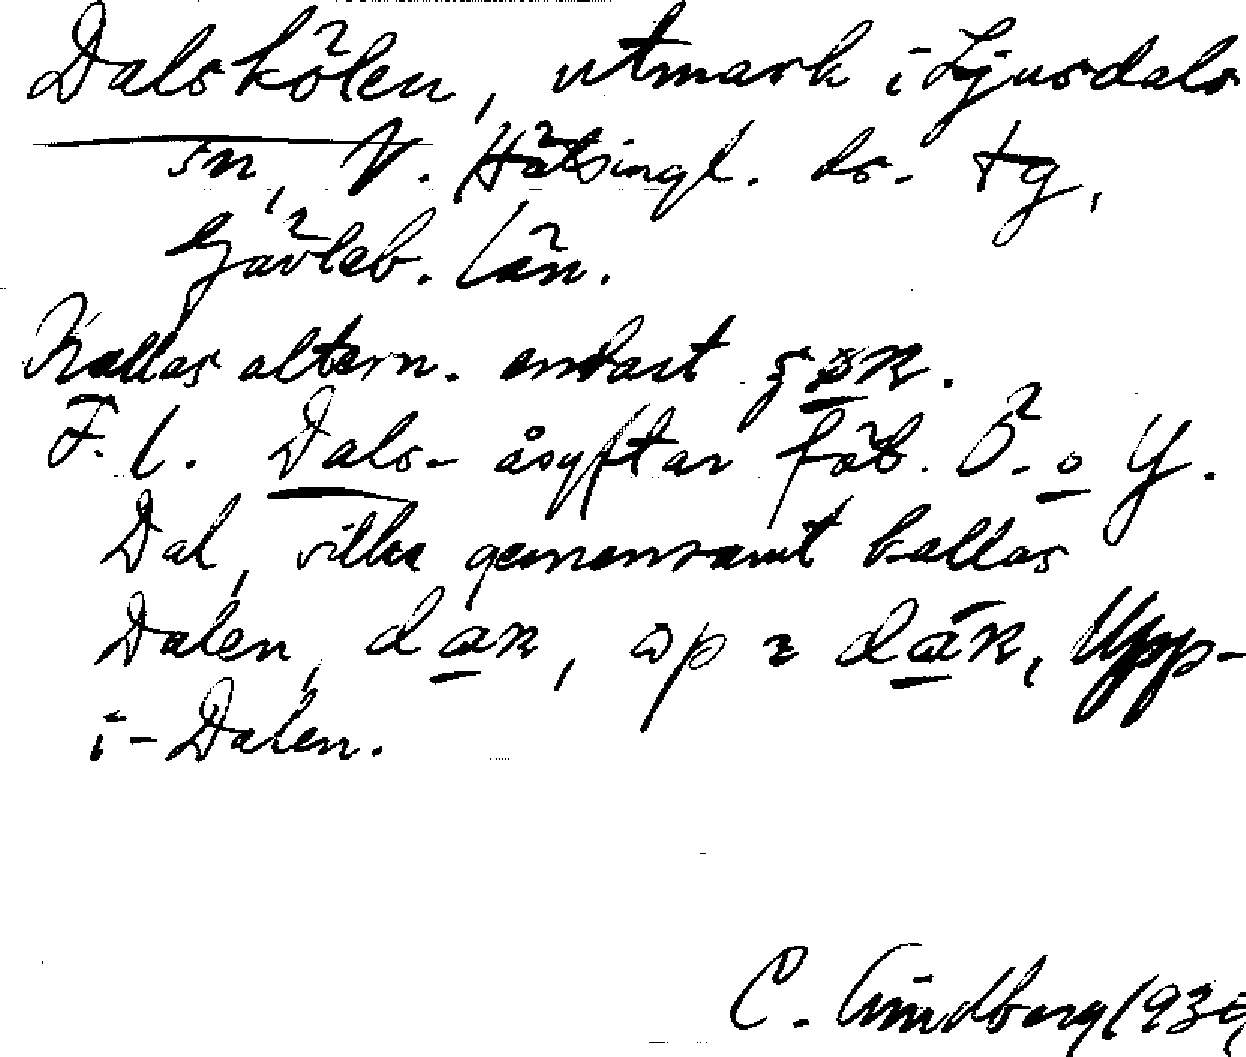 Dalskölen, utmark i Ljusdals
sn, V. Hälsingl. ds. tg,
Gävleb. län.
Kallas altern. endast
F. l. Dals- åsyftar fäb. Ö. o Y.
Dal, vilka gemensamt kallas
Dalen, dan, Upp-
i-Dalen.
C. Lindberg 1939